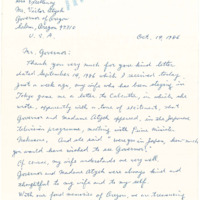 Mr. Victor Atiyeh
Governor of Oregon
Salem, Oregon 97310
U. S. A.
Oct. 19, 1986
Mr. Governor:
Thank you very much for your kind letter
dated September 14, 1986 which I received today.
Just a week ago, my wife who has been staying in
Tokyo gave me a letter to Calcutta, in which she
wrote, apparently with a tone of excitement, that
Governor and Madame Atiyeh appeared, in the Japanese
Television programme, meeting with Prime Minister
Nakasone. And she said : "were you in Japan, how much
you would have wished to see Governor!"
Of course, my wife understands me very well.
Governor and Madame Atiyeh were always kind and
thoughtful to my wife and to my self.
With our fond memories of Oregon,